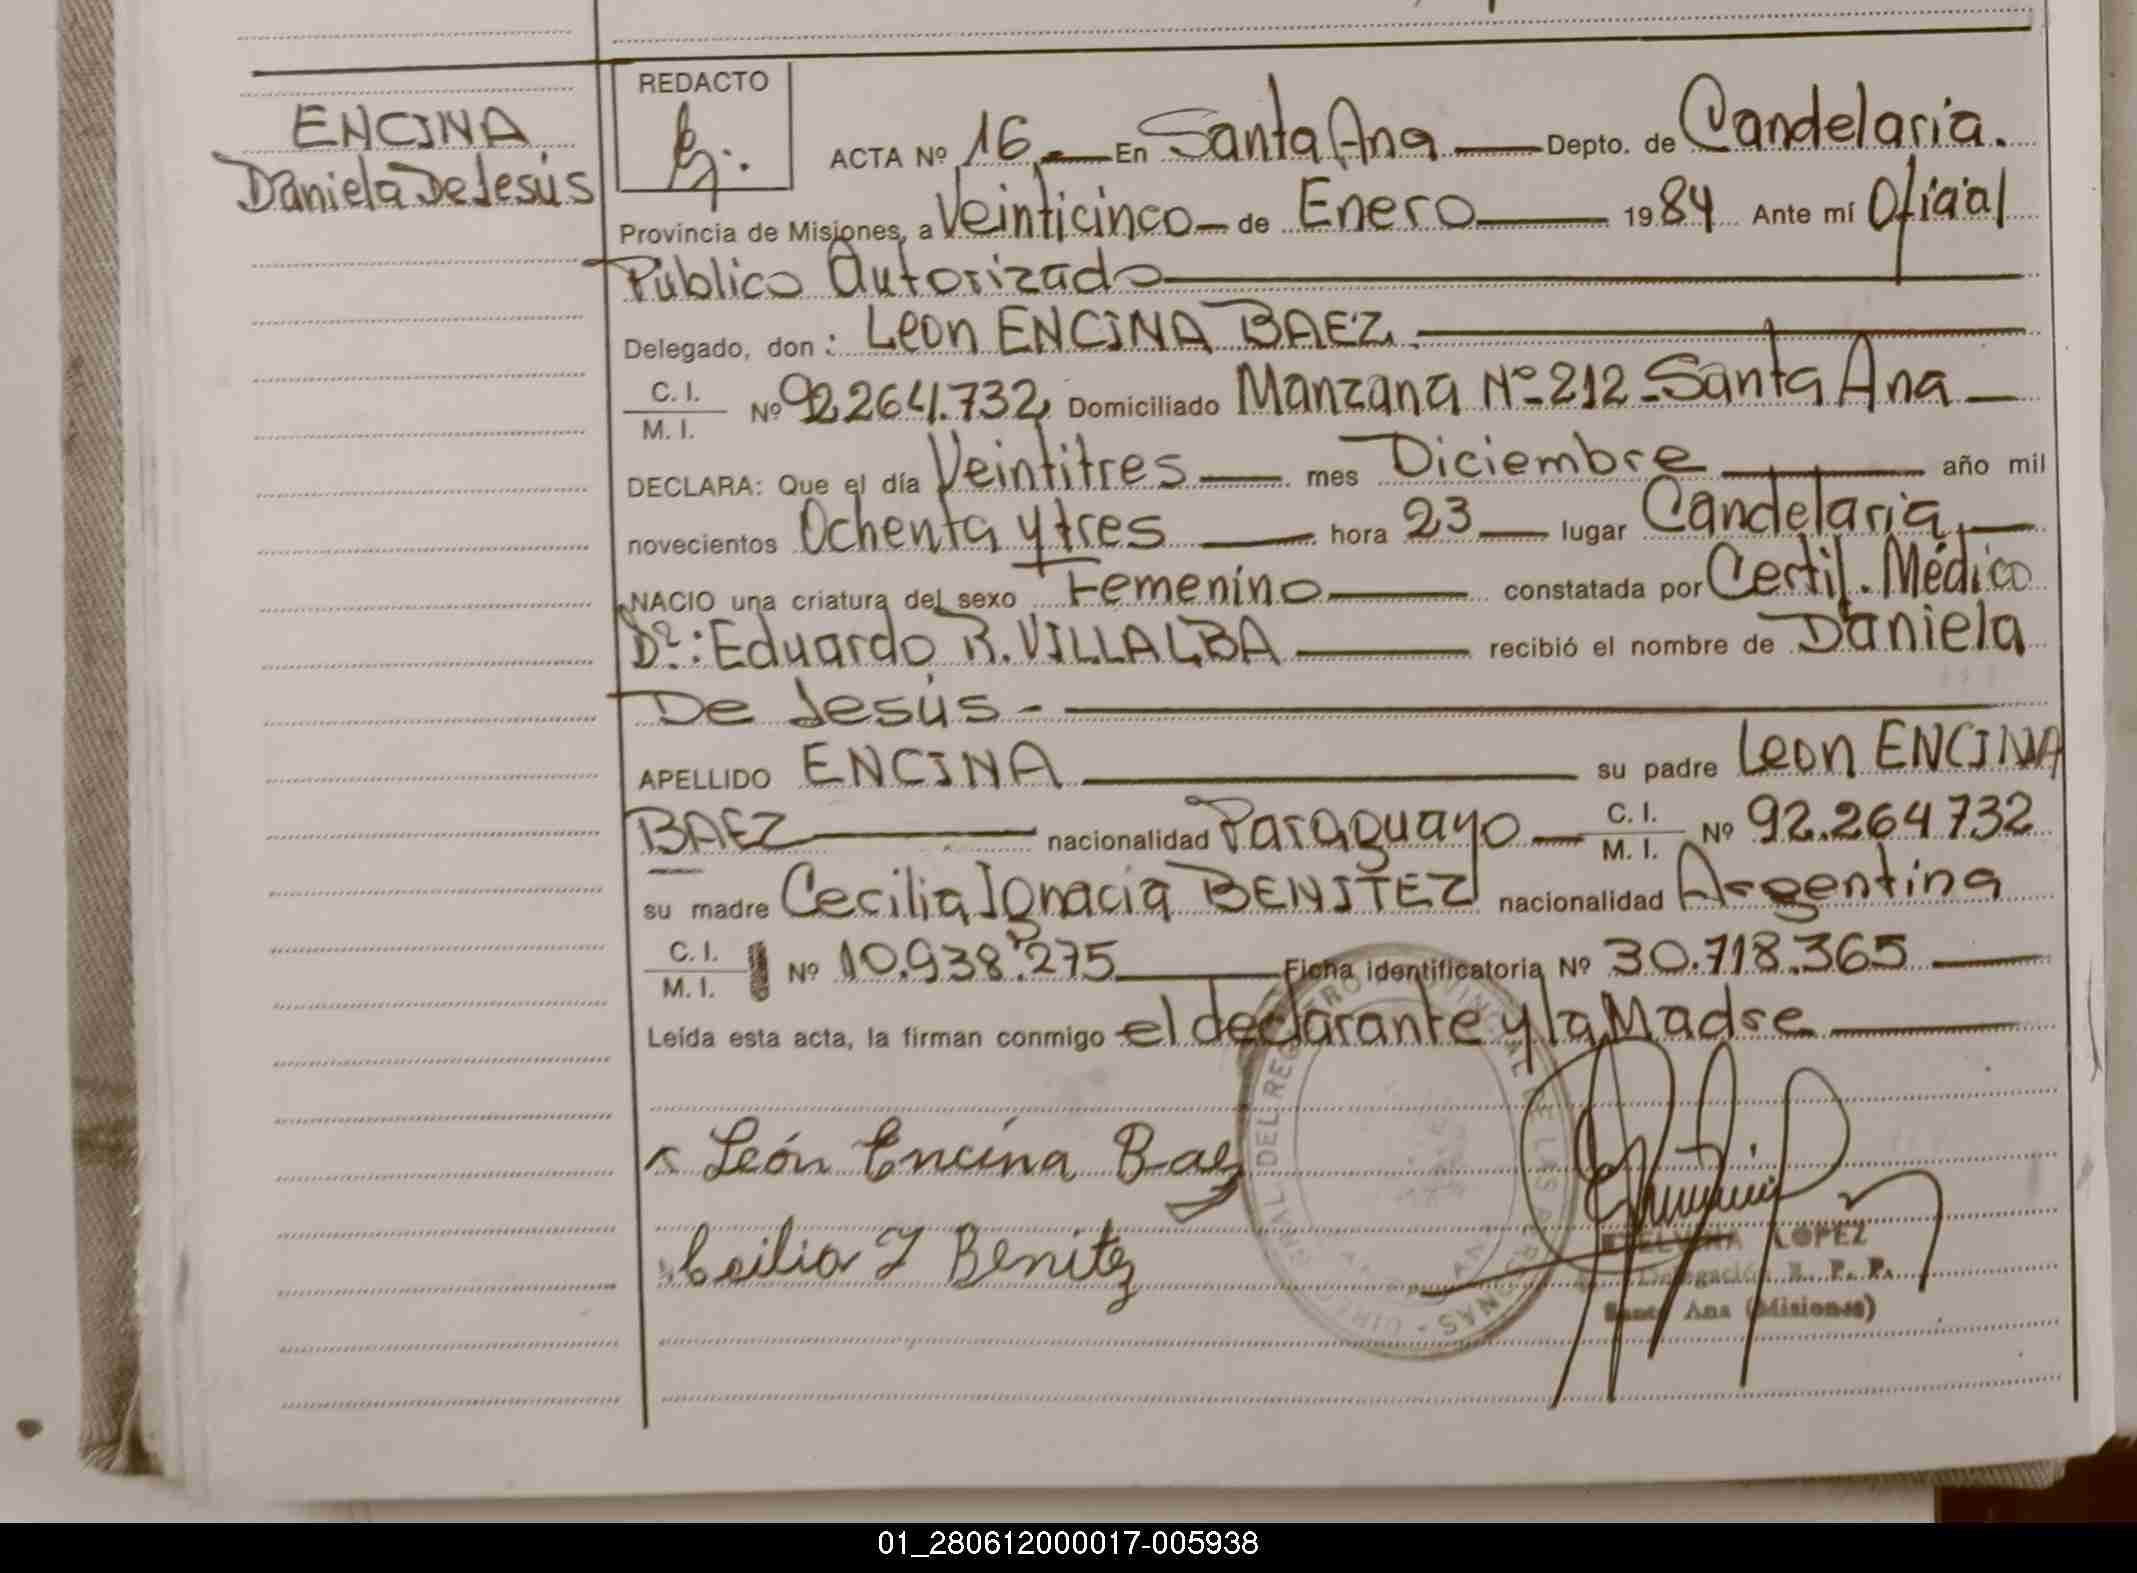 ENCINA
Daniela De Jesús
REDACTO
ACTA Nº 16 En Santa Ana Depto. de Candelaria.
Provincia de Misiones, a Veinticinco de Enero 1984 Ante mí Oficial
Público Autorizado
Delegado, don: Leon ENCINA BAEZ.
C. I.
M. I. Nº 92264.732 Domiciliado Manzana Nº 212 - Santa Ana
DECLARA: Que el día Veintitres mes Diciembre año mil
novecientos Ochenta y tres hora 23 lugar Candelaria,
NACIO una criatura del sexo Femenino constatada por Certif. Médico
Dr.: Eduardo R. VILLALBA recibió el nombre de Daniela
De Jesús -
APELLIDO ENCINA su padre Leon ENCINA
BAEZ nacionalidad Paraguayo C. I.
M. I. Nº 92.264732
su madre Cecilia Ignacia BENITEZ nacionalidad Argentina
C. I.
M. I. Nº 10.938.275 Ficha identificatoria Nº 30.718.365
Leída esta acta, la firman conmigo el declarante y la Madre
León Encina Baez
Cecilia I Benitez
LOPEZ
Delegación R. P. P.
Santa Ana (Misiones)
01_280612000017-005938